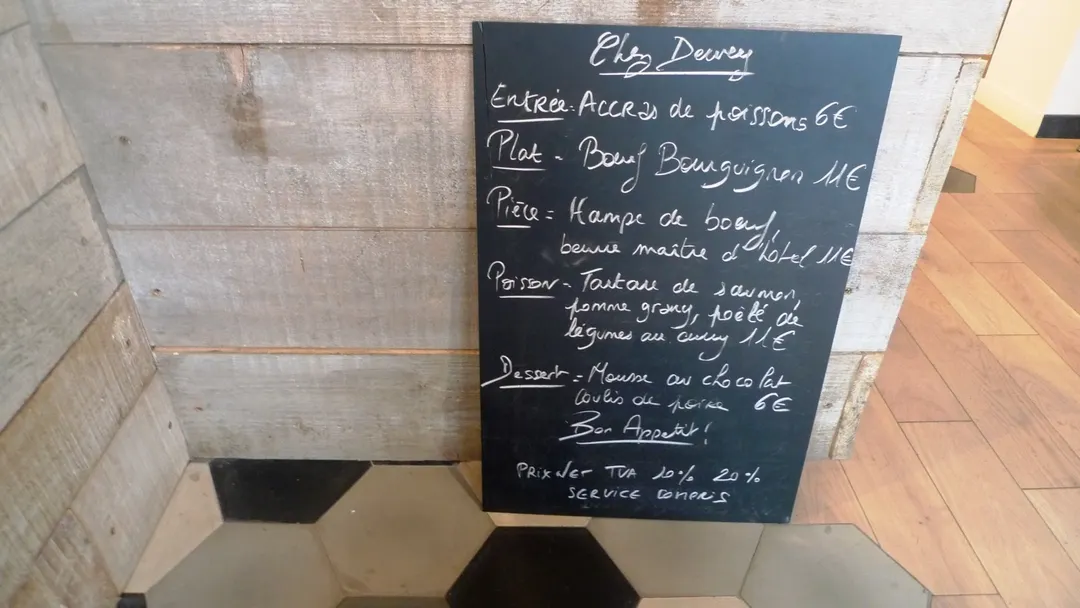 Chez Dewey
Entrée: Accras de poissons 6€
Plat - Boeuf Bourguignon 11€
Pièce = Hampe de boeuf,
beurre maître d'hôtel 11€
Poisson - Tartare de saumon,
pomme grany, poêlé de
légumes au curry 11€
Dessert = Mousse au chocolat
coulis de poire 6€
Bon Appetit!
PRIX NET TVA 10% 20%
SERVICE COMPRIS